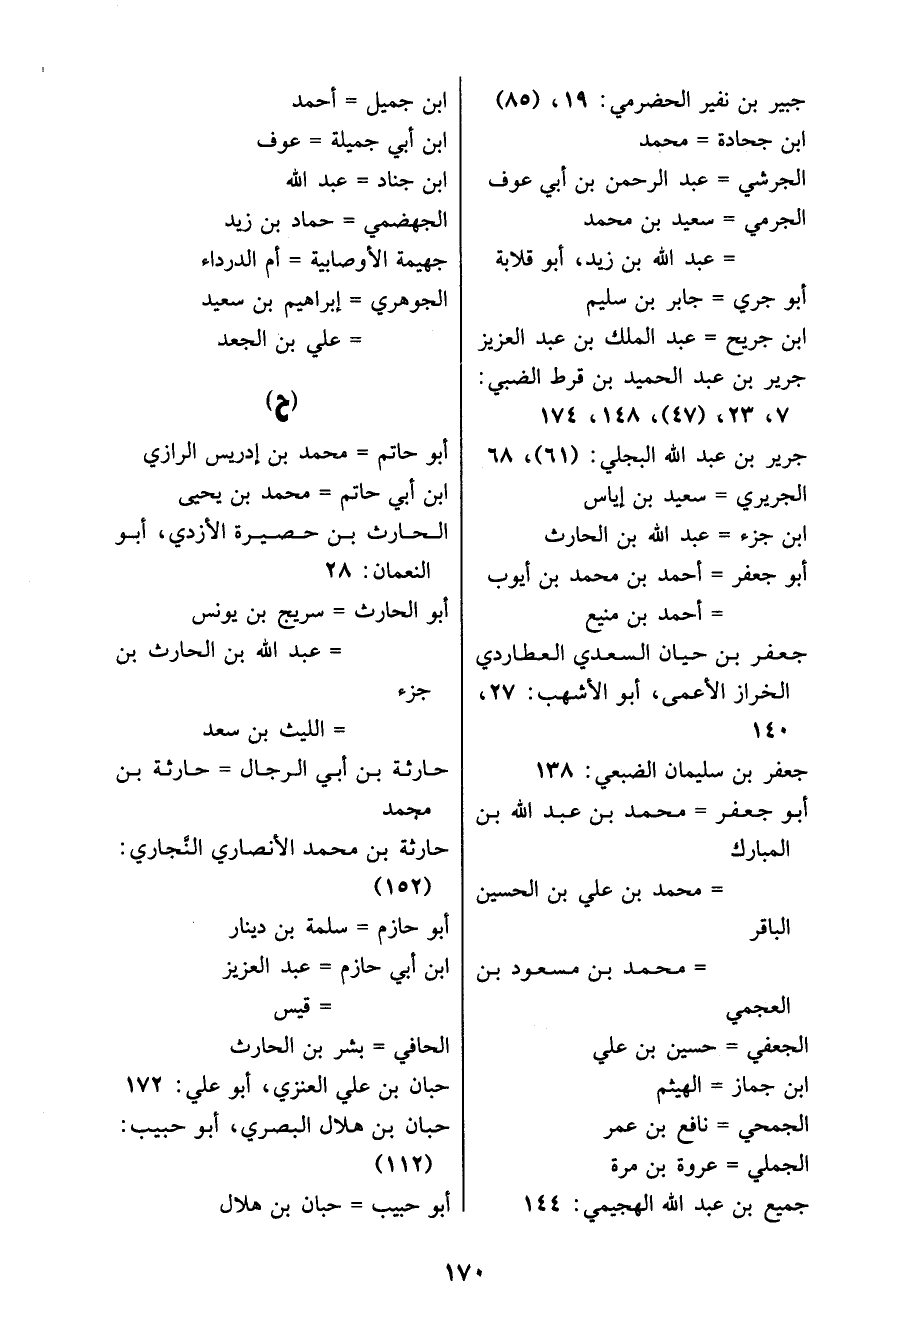 جبير بن نفير الحضرمي: ١٩، (٨٥)
ابن جحادة = محمد
الجرشي = عبد الرحمن بن أبي عوف
الجرمي = سعيد بن محمد
= عبد الله بن زيد، أبو قلابة
أبو جري = جابر بن سليم
ابن جريج = عبد الملك بن عبد العزيز
جرير بن عبد الحميد بن قرط الضبي:
٧، ٢٣، (٤٧)، ١٤٨، ١٧٤
جرير بن عبد الله البجلي: (٦١)، ٦٨
الجريري = سعيد بن إياس
ابن جزء = عبد الله بن الحارث
أبو جعفر = أحمد بن محمد بن أيوب
= أحمد بن منيع
جعفر بن حيان السعدي العطاردي
الخراز الأعمى، أبو الأشهب: ٢٧،
١٤٠
جعفر بن سليمان الضبعي: ١٣٨
أبو جعفر = محمد بن عبد الله بن
المبارك
= محمد بن علي بن الحسين
الباقر
= محمد بن مسعود بن
العجمي
الجعفي = حسين بن علي
ابن جماز = الهيثم
الجمحي = نافع بن عمر
الجملي = عروة بن مرة
جميع بن عبد الله الهجيمي: ١٤٤
ابن جميل = أحمد
ابن أبي جميلة = عوف
ابن جناد = عبد الله
الجهضمي = حماد بن زيد
جهيمة الأوصابية = أم الدرداء
الجوهري = إبراهيم بن سعيد
= علي بن الجعد
(ح)
أبو حاتم = محمد بن إدريس الرازي
ابن أبي حاتم = محمد بن يحيى
الحارث بن حصيرة الأزدي، أبو
النعمان: ٢٨
أبو الحارث = سريج بن يونس
= عبد الله بن الحارث بن
جزء
= الليث بن سعد
حارثة بن أبي الرجال = حارثة بن
محمد
حارثة بن محمد الأنصاري النَّجاري:
(١٥٢)
أبو حازم = سلمة بن دينار
ابن أبي حازم = عبد العزيز
= قيس
الحافي = بشر بن الحارث
حبان بن علي العنزي، أبو علي: ١٧٢
حبان بن هلال البصري، أبو حبيب:
(١١٢)
أبو حبيب = حبان بن هلال
١٧٠